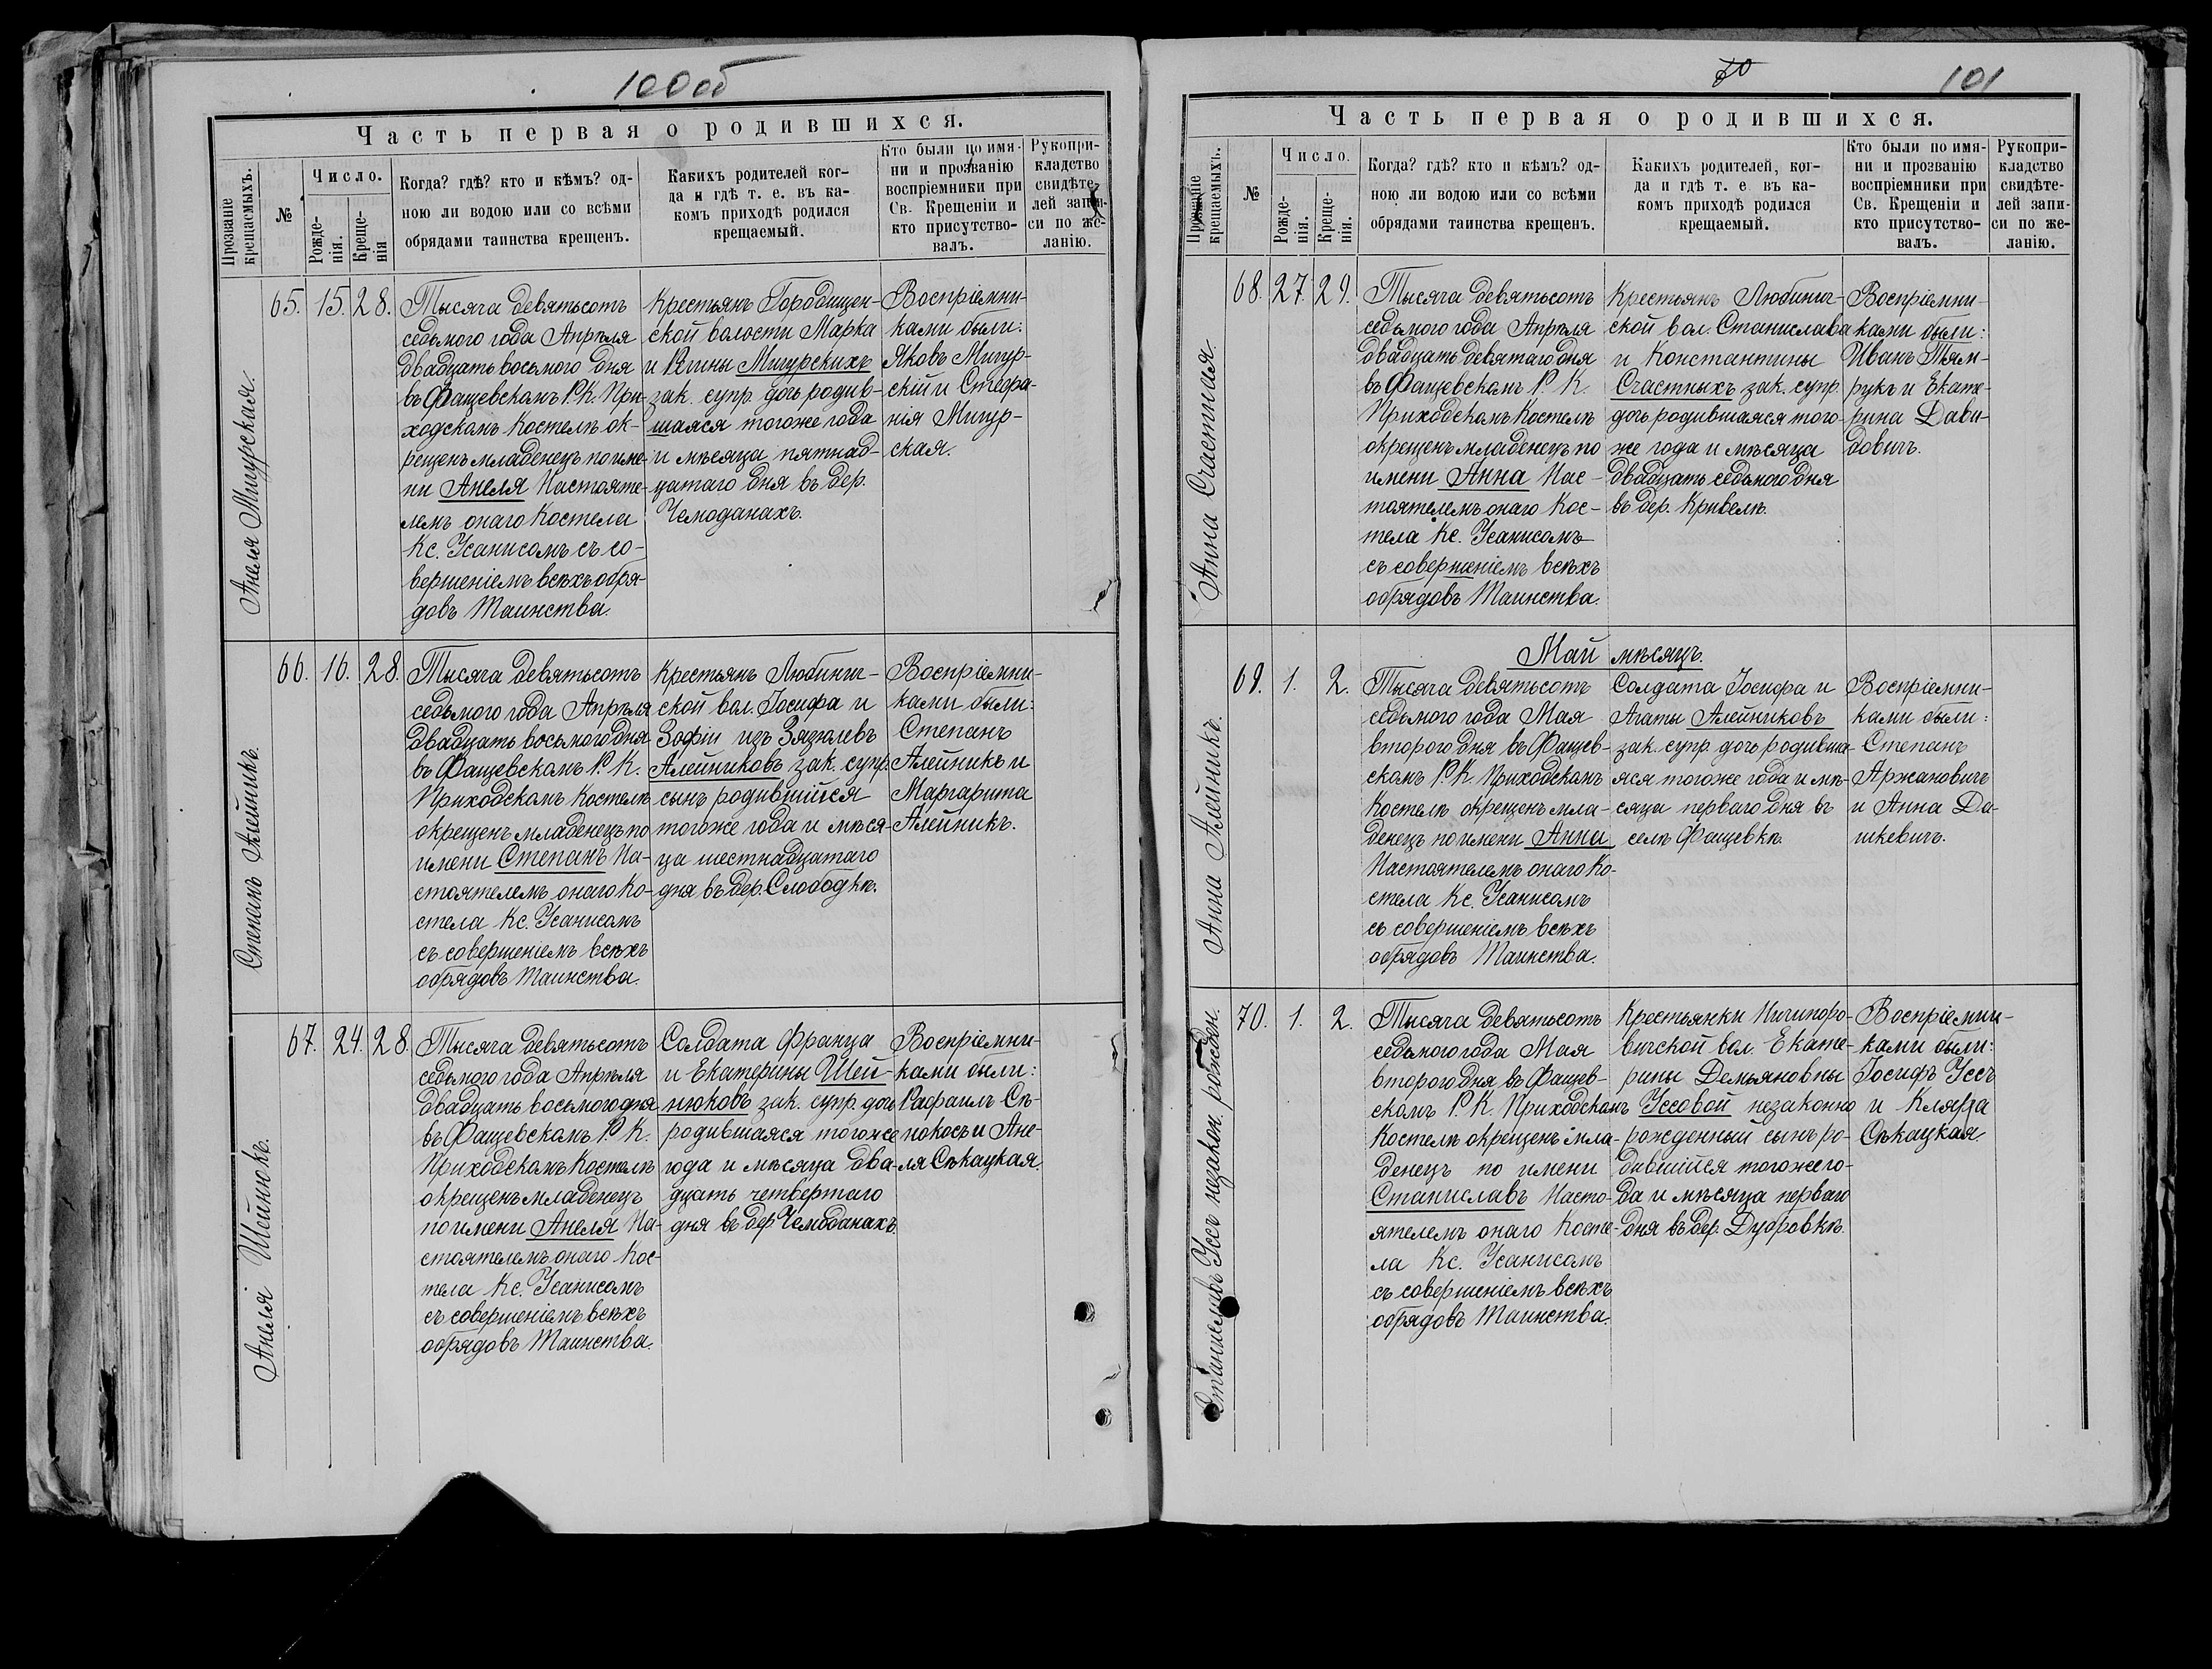 100об
Часть первая о родившихся.
Прозваніе крещаемыхъ.
№
Число.
Рожде-
нія.
Креще-
нія
Когда? гдѣ? кто и кѣмъ? од-
ною ли водою или со всѣми
обрядами таинства крещенъ.
Какихъ родителей ког-
да и гдѣ т. е. въ ка-
комъ приходѣ родился
крещаемый.
Кто были по имя-
ни и прозванію
воспріемники при
Св. Крещеніи и
кто присутство-
валъ.
Рукопри-
кладство
свидѣте-
лей запи-
си по же-
ланію.
Анеля Мигурская.
65. 15. 28.
Тысяча девятьсотъ
седьмого года Апрѣля
двадцать восьмого дня
въ Фащевскомъ Р. К. При-
ходскомъ Костелѣ ок-
рещенъ младенецъ по име-
ни Анеля Настояте-
лемъ онаго Костела
Кс. Усанисомъ съ со-
вершеніемъ всѣхъ обря-
довъ Таинства.
Крестьянъ Городищен-
ской волости Марка
и Ягины Мигурскихъ
зак. супр. дочь родив-
шаяся того же года
и мѣсяца пятнад-
цатаго дня въ дер.
Чемоданахъ.
Воспріемни-
ками были:
Яковъ Мигур-
скій и Стефа-
нія Мигур-
ская.
Степанъ Алейникъ.
66. 16. 28.
Тысяча девятьсотъ
седьмого года Апрѣля
двадцать восьмого дня
въ Фащевскомъ Р. К.
Приходскомъ Костелѣ
окрещенъ младенецъ по
имени Степанъ На-
стоятелемъ онаго Ко-
стела Кс. Усанисомъ
съ совершеніемъ всѣхъ
обрядовъ Таинства.
Крестьянъ Любинич-
ской вол. Іосифа и
Зофіи изъ Зязюлевъ
Алейниковъ зак. супр.
сынъ родившійся
того же года и мѣся-
ца шестнадцатаго
дня въ дер. Слободкѣ.
Воспріемни-
ками были:
Степанъ
Алейникъ и
Маргарита
Алейникъ.
Анеля Шейнюкъ.
67. 24. 28.
Тысяча девятьсотъ
седьмого года Апрѣля
двадцать восьмого дня
въ Фащевскомъ Р. К.
Приходскомъ Костелѣ
окрещенъ младенецъ
по имени Анеля На-
стоятелемъ онаго Кос-
тела Кс. Усанисомъ
съ совершеніемъ всѣхъ
обрядовъ Таинства.
Солдата Франца
и Екатерины Шей-
нюковъ зак. супр. дочь
родившаяся того же
года и мѣсяца два-
дцать четвертаго
дня въ дер. Чемоданахъ.
Воспріемни-
ками были:
Рафаилъ Сѣ-
нокосъ и Ане-
ля Сѣкацкая.
101
Часть первая о родившихся.
Прозваніе крещаемыхъ.
№
Число.
Рожде-
нія.
Креще-
нія.
Когда? гдѣ? кто и кѣмъ? од-
ною ли водою или со всѣми
обрядами таинства крещенъ.
Какихъ родителей, ког-
да и гдѣ т. е. въ ка-
комъ приходѣ родился
крещаемый.
Кто были по имя-
ни и прозванію
воспріемники при
Св. Крещеніи и
кто присутство-
валъ.
Рукопри-
кладство
свидѣте-
лей запи-
си по же-
ланію.
Анна Счастная.
68. 27. 29.
Тысяча девятьсотъ
седьмого года Апрѣля
двадцать девятаго дня
въ Фащевскомъ Р. К.
Приходскомъ Костелѣ
окрещенъ младенецъ по
имени Анна Нас-
тоятелемъ онаго Кос-
тела Кс. Усанисомъ
съ совершеніемъ всѣхъ
обрядовъ Таинства.
Крестьянъ Любинич-
ской вол. Станислава
и Константины
Счастныхъ зак. супр.
дочь родившаяся того-
же года и мѣсяца
двадцать седьмого дня
въ дер. Кривелѣ.
Воспріемни-
ками были:
Иванъ Тям-
рукъ и Екате-
рина Дави-
довичъ.
Май мѣсяцъ.
Анна Алейникъ.
69. 1. 2.
Тысяча девятьсотъ
седьмого года Мая
второго дня въ Фащев-
скомъ Р. К. Приходскомъ
Костелѣ окрещенъ мла-
денецъ по имени Анна
Настоятелемъ онаго Ко-
стела Кс. Усанисомъ
съ совершеніемъ всѣхъ
обрядовъ Таинства.
Солдата Іосифа и
Агаты Алейниковъ
зак. супр. дочь родивша-
яся того же года и мѣ-
сяца перваго дня въ
селѣ Фащевкѣ.
Воспріемни-
ками были:
Степанъ
Аржановичъ
и Анна Да-
шкевичъ.
Станиславъ Уссъ незакон. рожден.
70. 1. 2.
Тысяча девятьсотъ
седьмого года Мая
второго дня въ Фащев-
скомъ Р. К. Приходскомъ
Костелѣ окрещенъ мла-
денецъ по имени
Станиславъ Насто-
ятелемъ онаго Косте-
ла Кс. Усанисомъ
съ совершеніемъ всѣхъ
обрядовъ Таинства.
Крестьянки Ничипоро-
вичской вол. Екате-
рины Демьяновны
Уссовой незаконно
рожденный сынъ ро-
дившійся того же го-
да и мѣсяца перваго
дня въ дер. Дубровкѣ.
Воспріемни-
ками были:
Іосифъ Уссъ
и Кляра
Сѣкацкая.